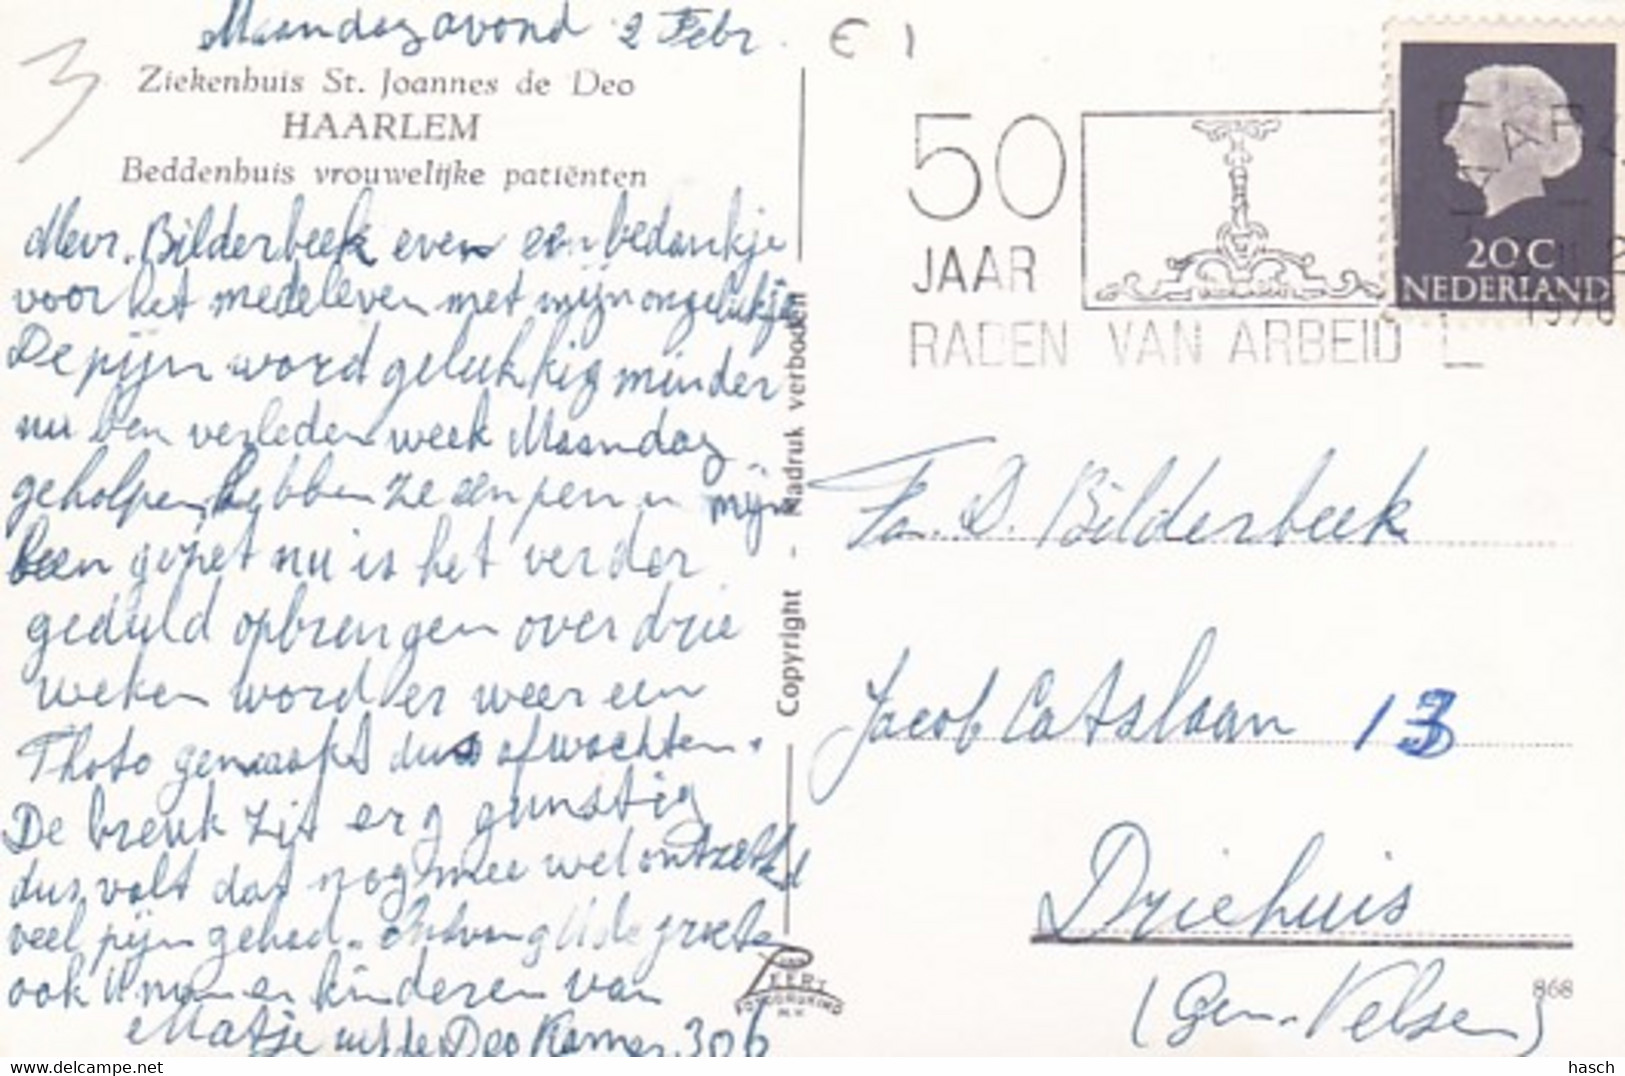 Maandagavond 2 Febr.
Ziekenhuis St. Joannes de Deo
HAARLEM
Beddenhuis vrouwelijke patiënten
Mevr. Bilderbeek even een bedankje
voor het medeleven met mijn ongelukje
De pijn word gelukkig minder
nu ben verleden week Maandag
geholpen hebben ze een pen in mijn
been gezet nu is het verder
geduld opbrengen over drie
weken word er weer een
Photo gemaakt dus afwachten.
De breuk zit erg gunstig
dus valt dat nog mee wel ontzettend
veel pijn gehad. Ontvang U de groeten
ook U man en kinderen van
Matje uit de Deo Kamer 306
Copyright - Nadruk verboden
JAN
PEERS
FOTODRUKIND
N.V.
€ 1
50
JAAR
RADEN VAN ARBEID
20 C
NEDERLAND
1970
Fam. D. Bilderbeek
Jacob Catslaan 13
Driehuis
(Gem. Velsen)
868
hasch
www.delcampe.net